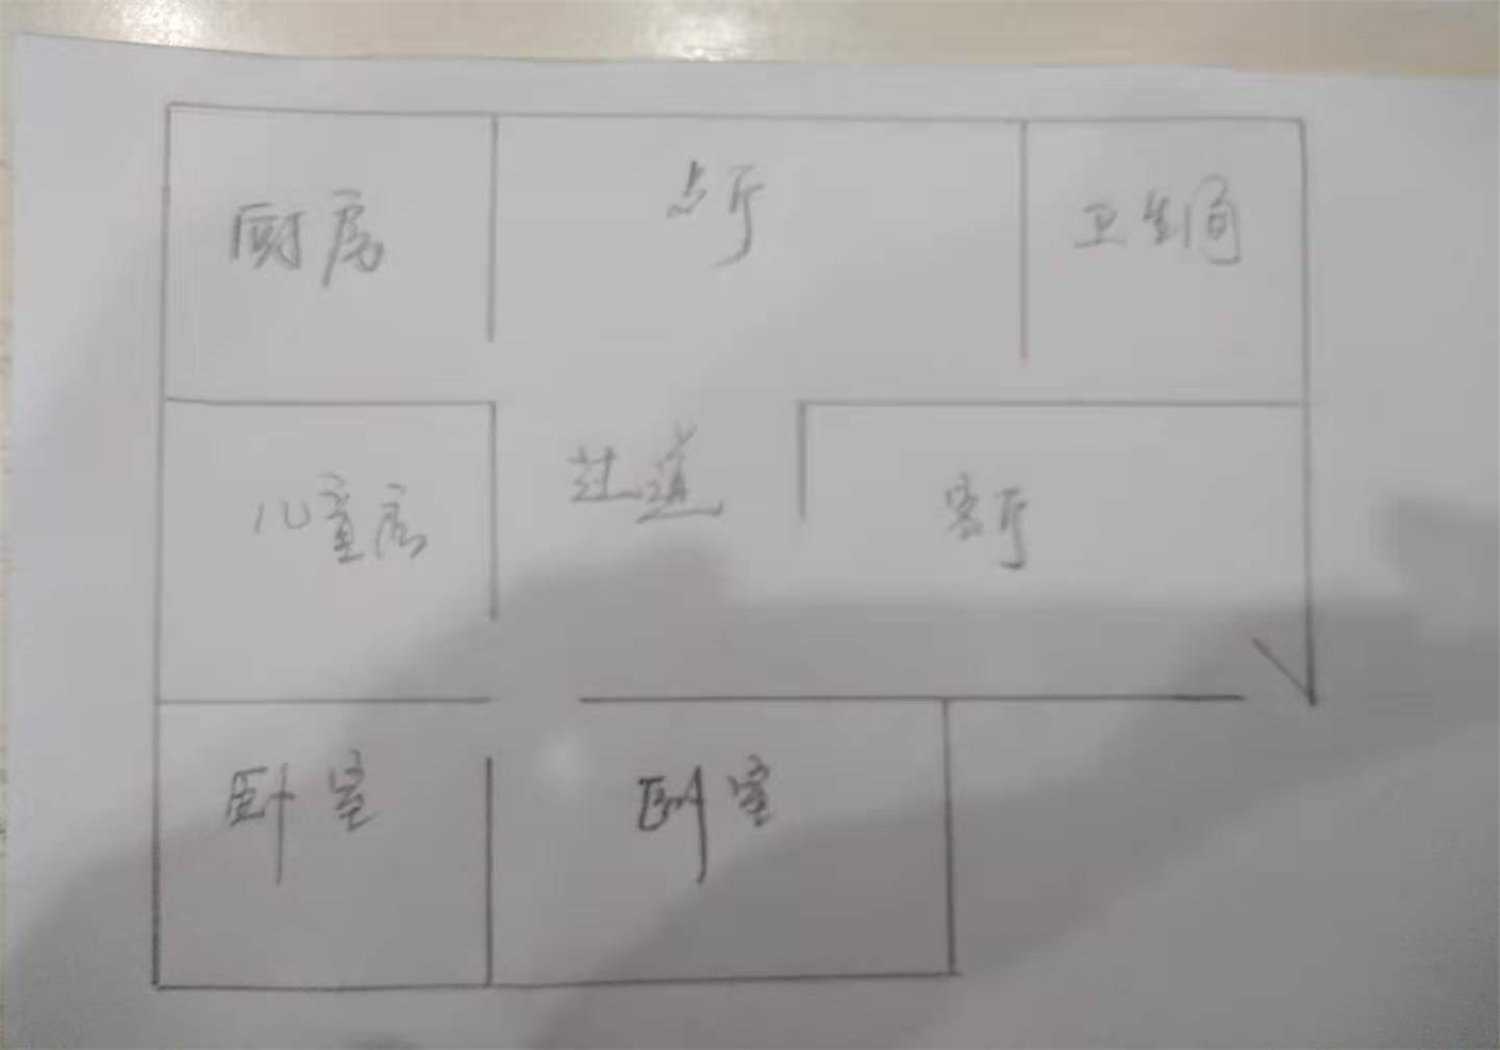 厨房
卫生间
过道
儿童房
客厅
卧室
卧室